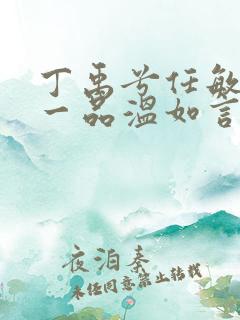 丁禹兮任敏
一品温如言
夜泊秦
未经同意禁止转载